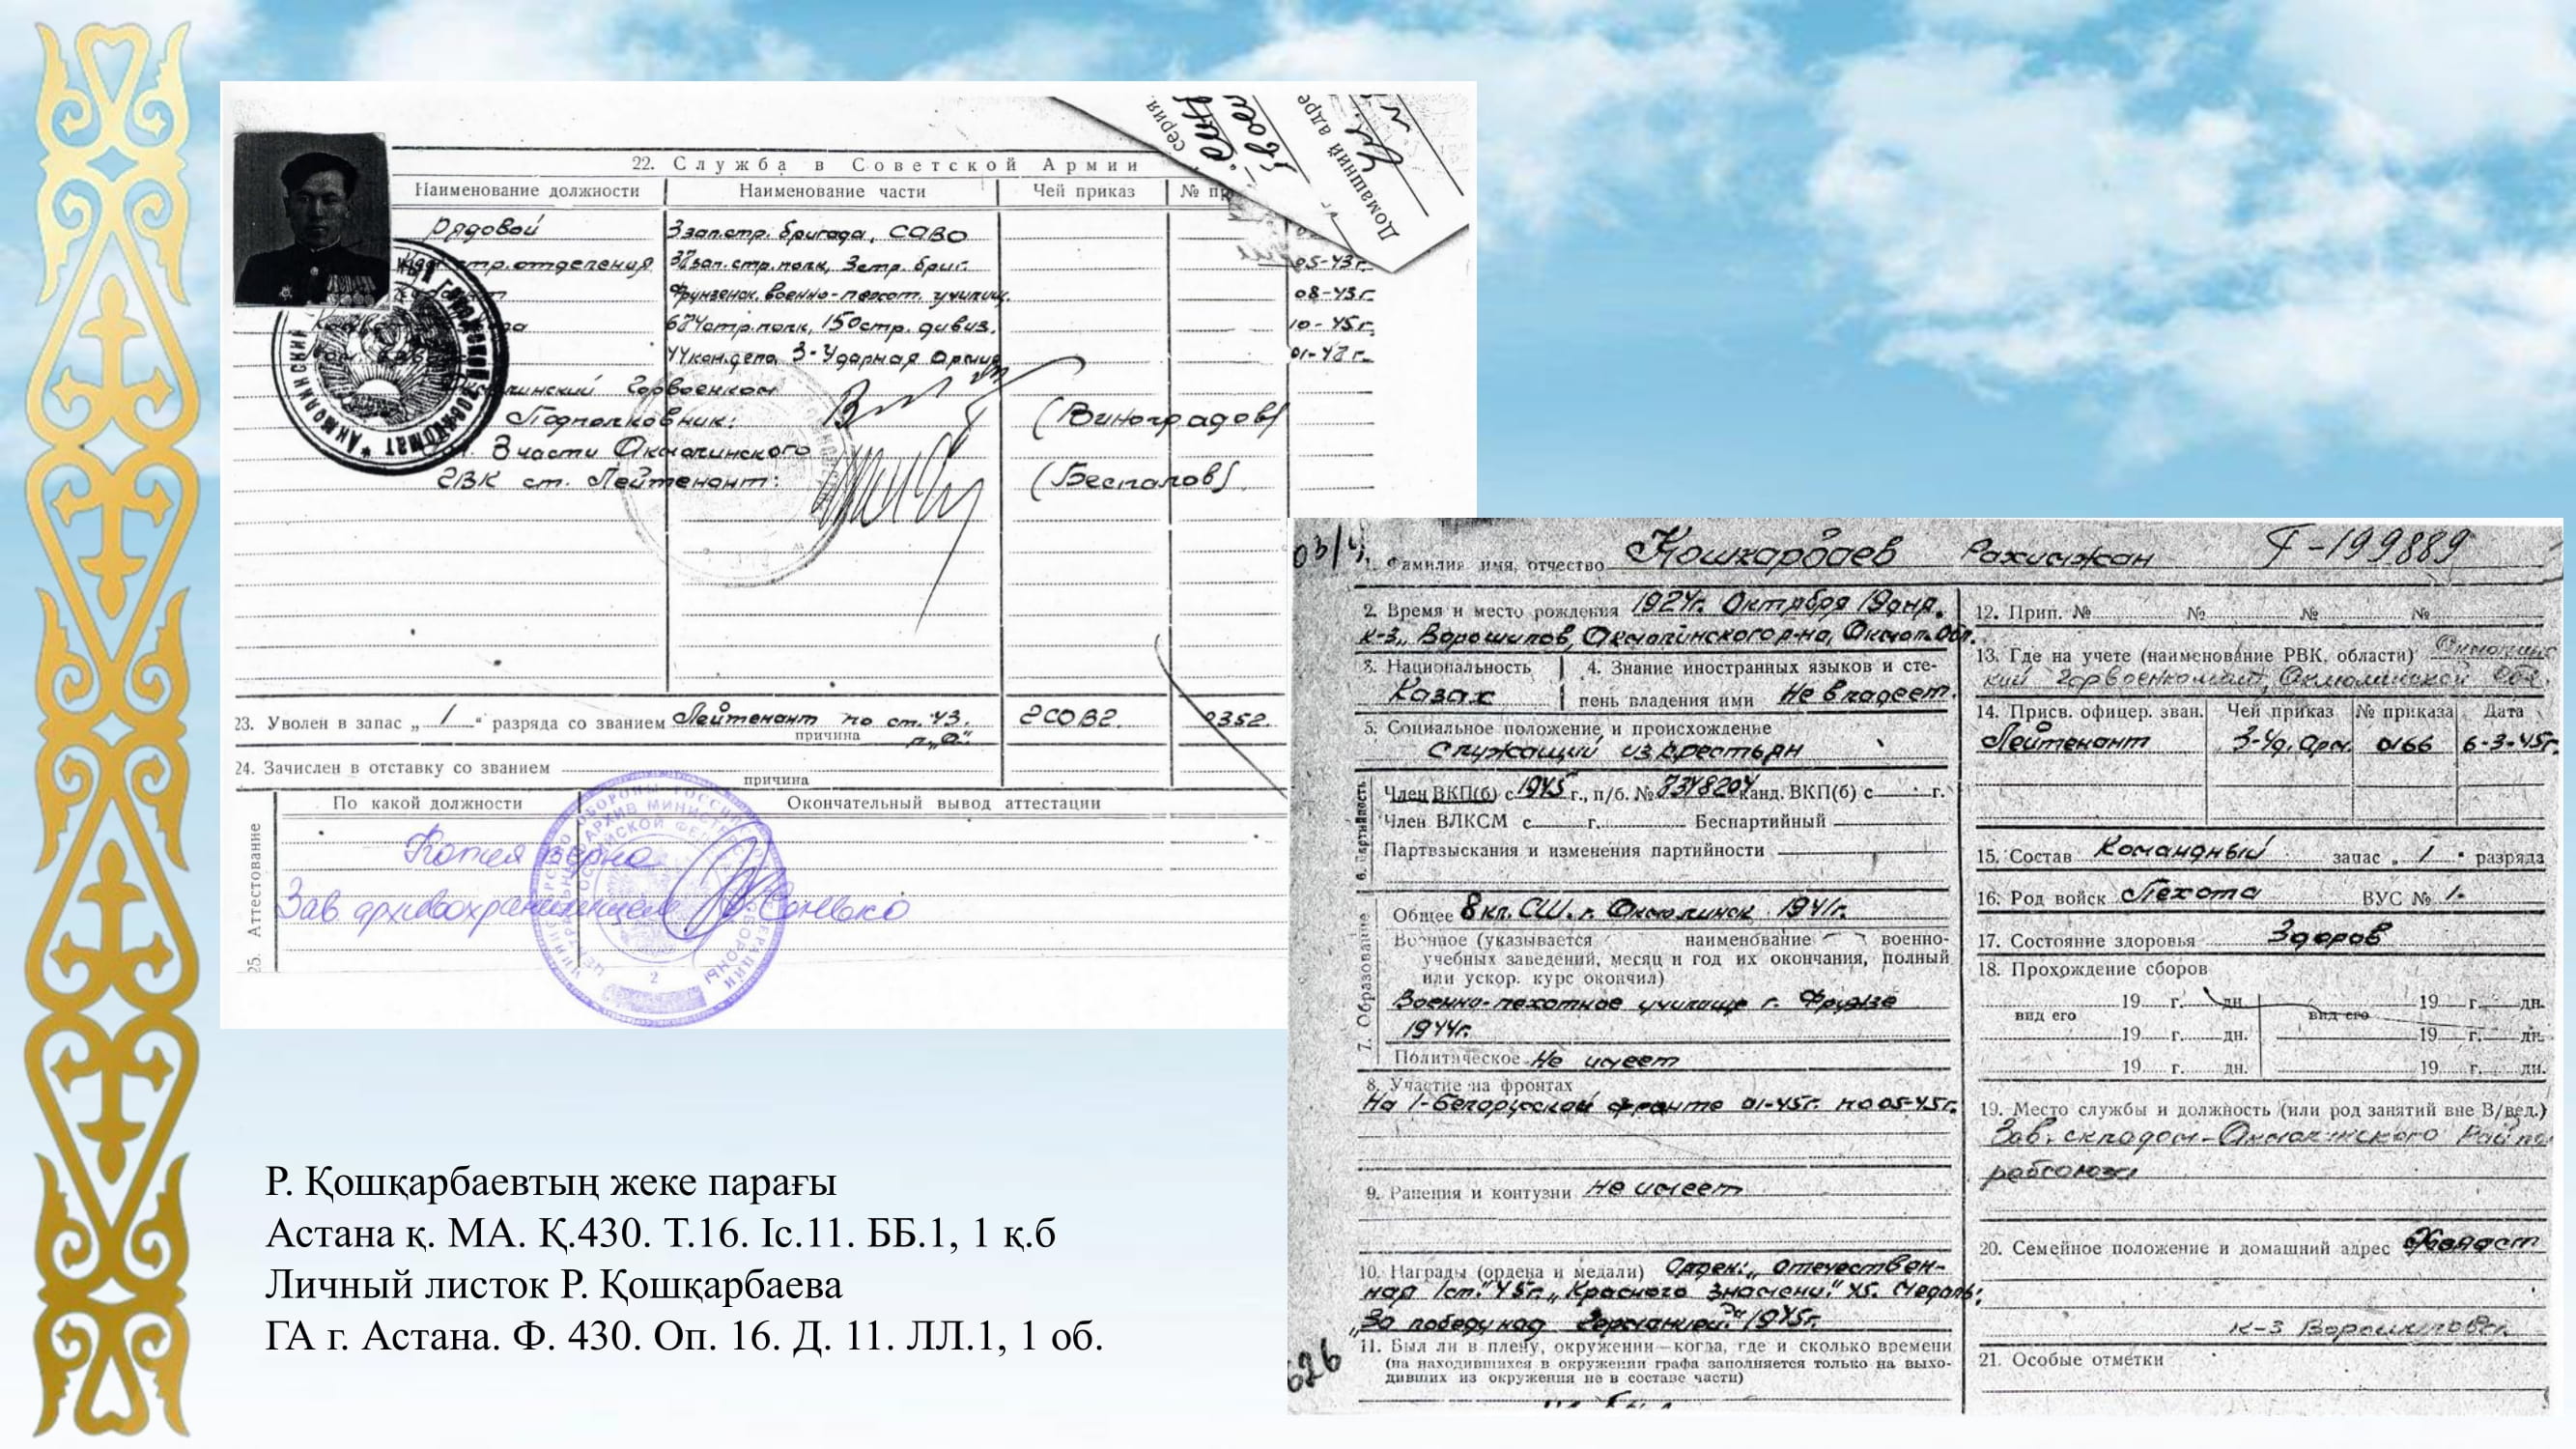 серия
Домашний адре
22. Служба в Советской Армии
Наименование должности Наименование части Чей приказ №
рядовой 3 зап.стр. бригада, САВО
стр. отделения 37 зап. стр. полк, 3 стр. бриг. 05-43г.
Фрунзенск. военно-пехот. училищ. 08-43г.
674 стр. полк, 150 стр. дивиз. 10-45г.
44 кон. депо 3-Ударная Армия 01-47г.
Горвоенком
Подполковник: (Виноградов)
3 части Акмолинского
ГВК ст. Лейтенант: (Беспалов)
23. Уволен в запас „1“ разряда со званием Лейтенант по ст. 43. ГСОВГ. 0352.
причина п„а“
24. Зачислен в отставку со званием
причина
25. Аттестование
По какой должности Окончательный вывод аттестации
Копия верна
Зав. архивохранилищем
1. Фамилия имя, отчество Кошкарбаев Рахимжан Г-199889
2. Время и место рождения 1924г. Октября 19 дня.
к-з „Ворошилов, Акмолинского р-на, Акмол. Обл.
3. Национальность
Казах
4. Знание иностранных языков и сте-
пень владения ими Не владеет.
5. Социальное положение и происхождение
Служащий из крестьян
6. Партийность
Член ВКП(б) с 1945 г., п/б. № 7348204 канд. ВКП(б) с г.
Член ВЛКСМ с г. Беспартийный
Партвзыскания и изменения партийности
7. Образование
Общее 8 кл. СШ. г. Акмолинск 1941г.
Военное (указывается наименование военно-
учебных заведений, месяц и год их окончания, полный
или ускор. курс окончил)
Военно-пехотное училище г. Фрунзе
1944г.
Политическое Не имеет
8. Участие на фронтах
На 1-Белорусском фронте 01-45г. по 05-45г.
9. Ранения и контузии не имеет
10. Награды (ордена и медали) Орден: „Отечествен-
ная 1ст." 45г. „Красного Знамени" 45. Медаль:
„За победу над Германией" 1945г.
11. Был ли в плену, окружении—когда, где и сколько времени
(на находившихся в окружении графа заполняется только на выхо-
дивших из окружения не в составе части)
12. Прип. № № № №
13. Где на учете (наименование РВК, области) Акмолинс
кий Горвоенкомат, Акмолинской Обл.
14. Присв. офицер. зван. Чей приказ № приказа Дата
Лейтенант 3-Уд. Арм. 0166 6-3-45г.
15. Состав Командный запас „1“ разряда
16. Род войск Пехота ВУС № 1-
17. Состояние здоровья Здоров
18. Прохождение сборов
19 г. дн. 19 г. дн.
вид его вид его
19 г. дн. 19 г. дн.
19 г. дн. 19 г. дн.
19. Место службы и должность (или род занятий вне В/вед.)
Зав. складом-Акмолинского Райпо
20. Семейное положение и домашний адрес Холост
к-з Ворошилов
21. Особые отметки
Р. Қошқарбаевтың жеке парағы
Астана қ. МА. Қ.430. Т.16. Іс.11. ББ.1, 1 қ.б
Личный листок Р. Қошқарбаева
ГА г. Астана. Ф. 430. Оп. 16. Д. 11. ЛЛ.1, 1 об.